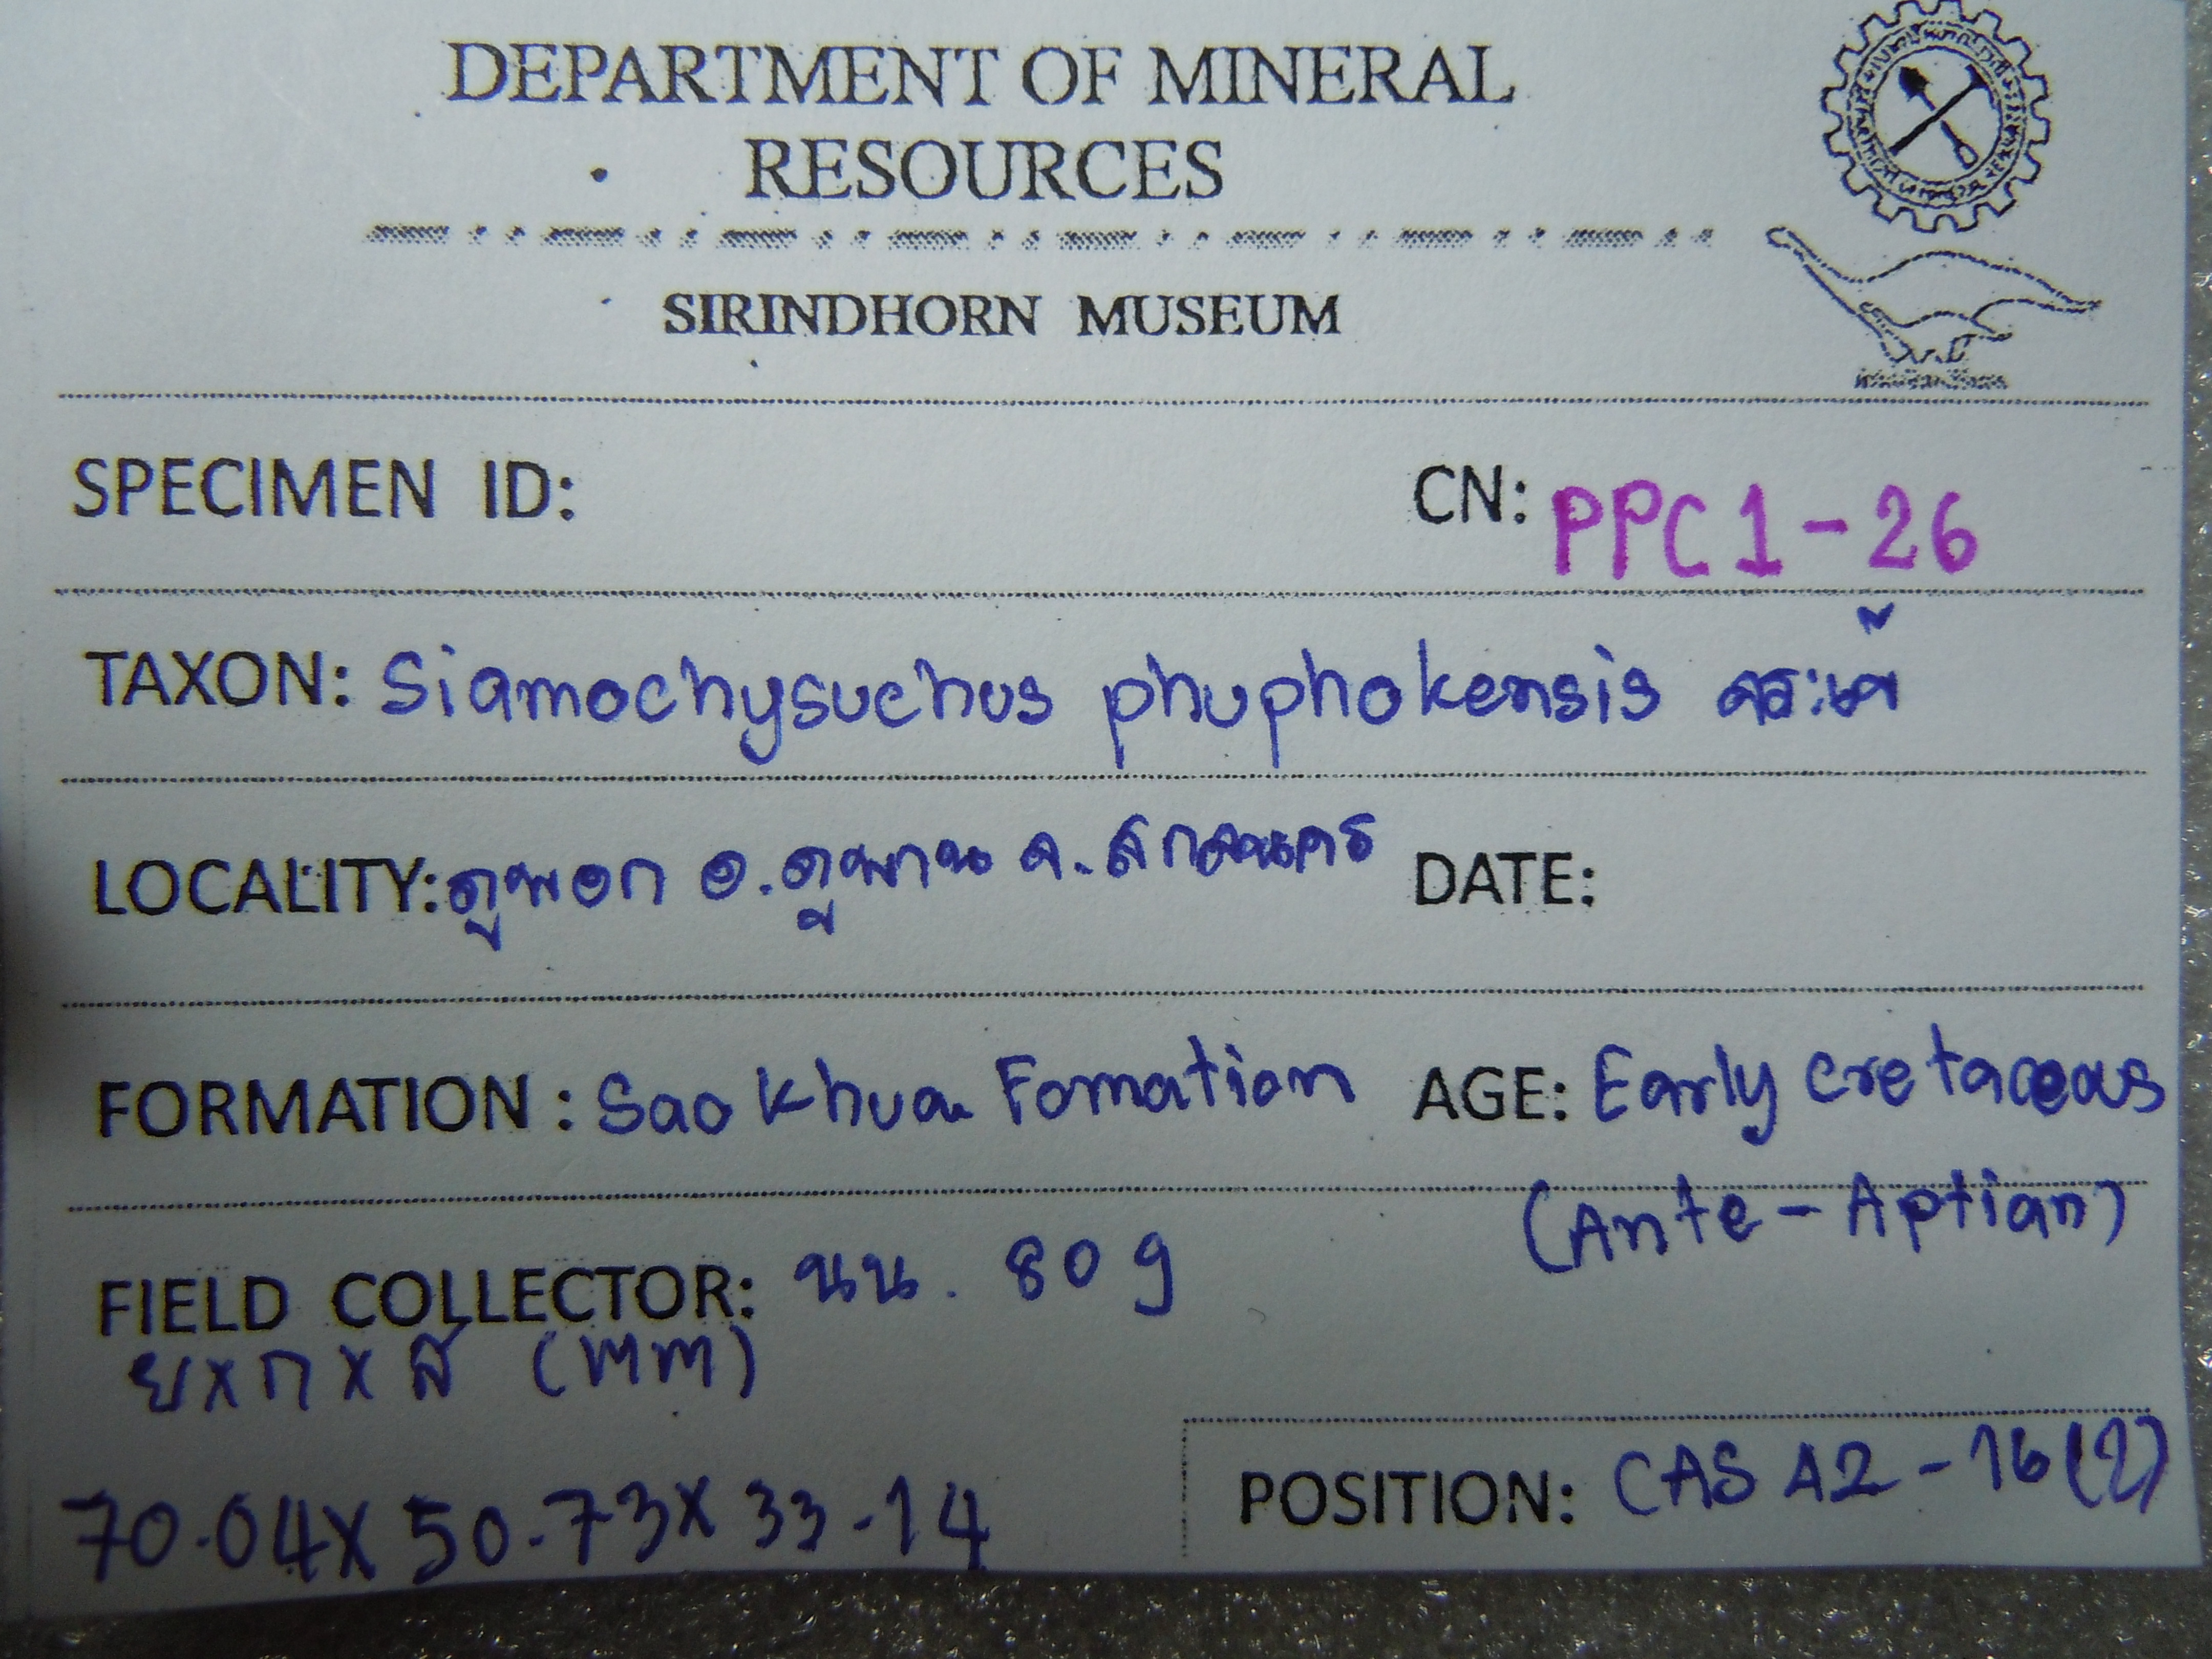 DEPARTMENT OF MINERAL
RESOURCES
SIRINDHORN MUSEUM
SPECIMEN ID: CN: PPC1-26
TAXON: Siamochysuchus phuphokensis จระเข้
LOCALITY: ภูพอก อ.ภูพาน จ.สกลนคร DATE:
FORMATION : Sao Khua Fomation AGE: Early cretaceous
(Ante-Aptian)
FIELD COLLECTOR: นน. 80 g
ย x ก x ส (mm)
70.04 x 50.73 x 33.14
POSITION: CAS A2-16(2)